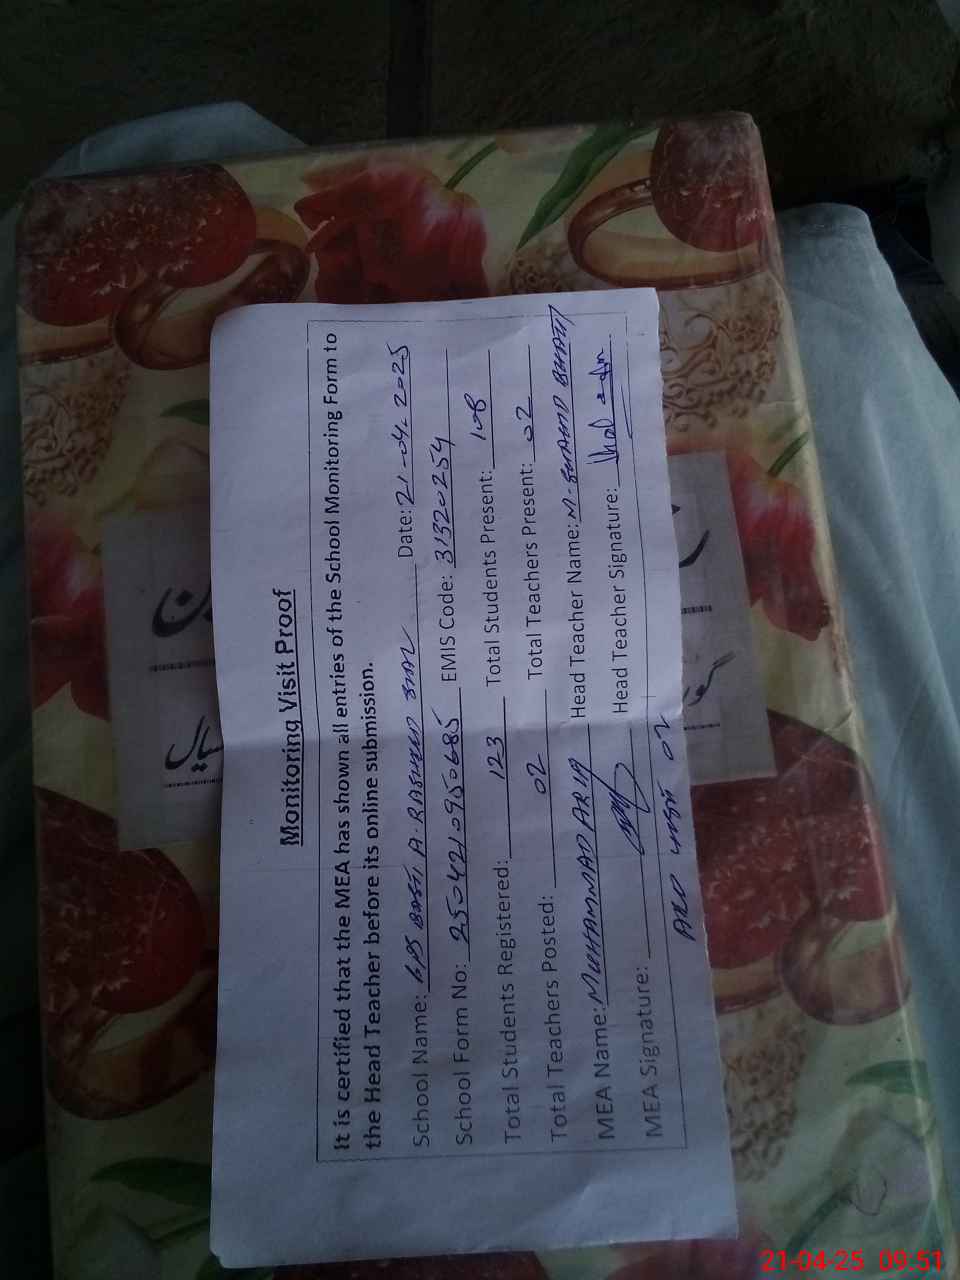 Monitoring Visit Proof
It is certified that the MEA has shown all entries of the School Monitoring Form to
the Head Teacher before its online submission.
School Name: GPS BASTI A. RASHEED SIAL Date: 21-04-2025
School Form No: 2504210950685 EMIS Code: 31320254
Total Students Registered: 123 Total Students Present: 108
Total Teachers Posted: 02 Total Teachers Present: 02
MEA Name: MUHAMMAD ARIF Head Teacher Name: M.
MEA Signature: Head Teacher Signature:
02
سیال
21-04-25 09:51